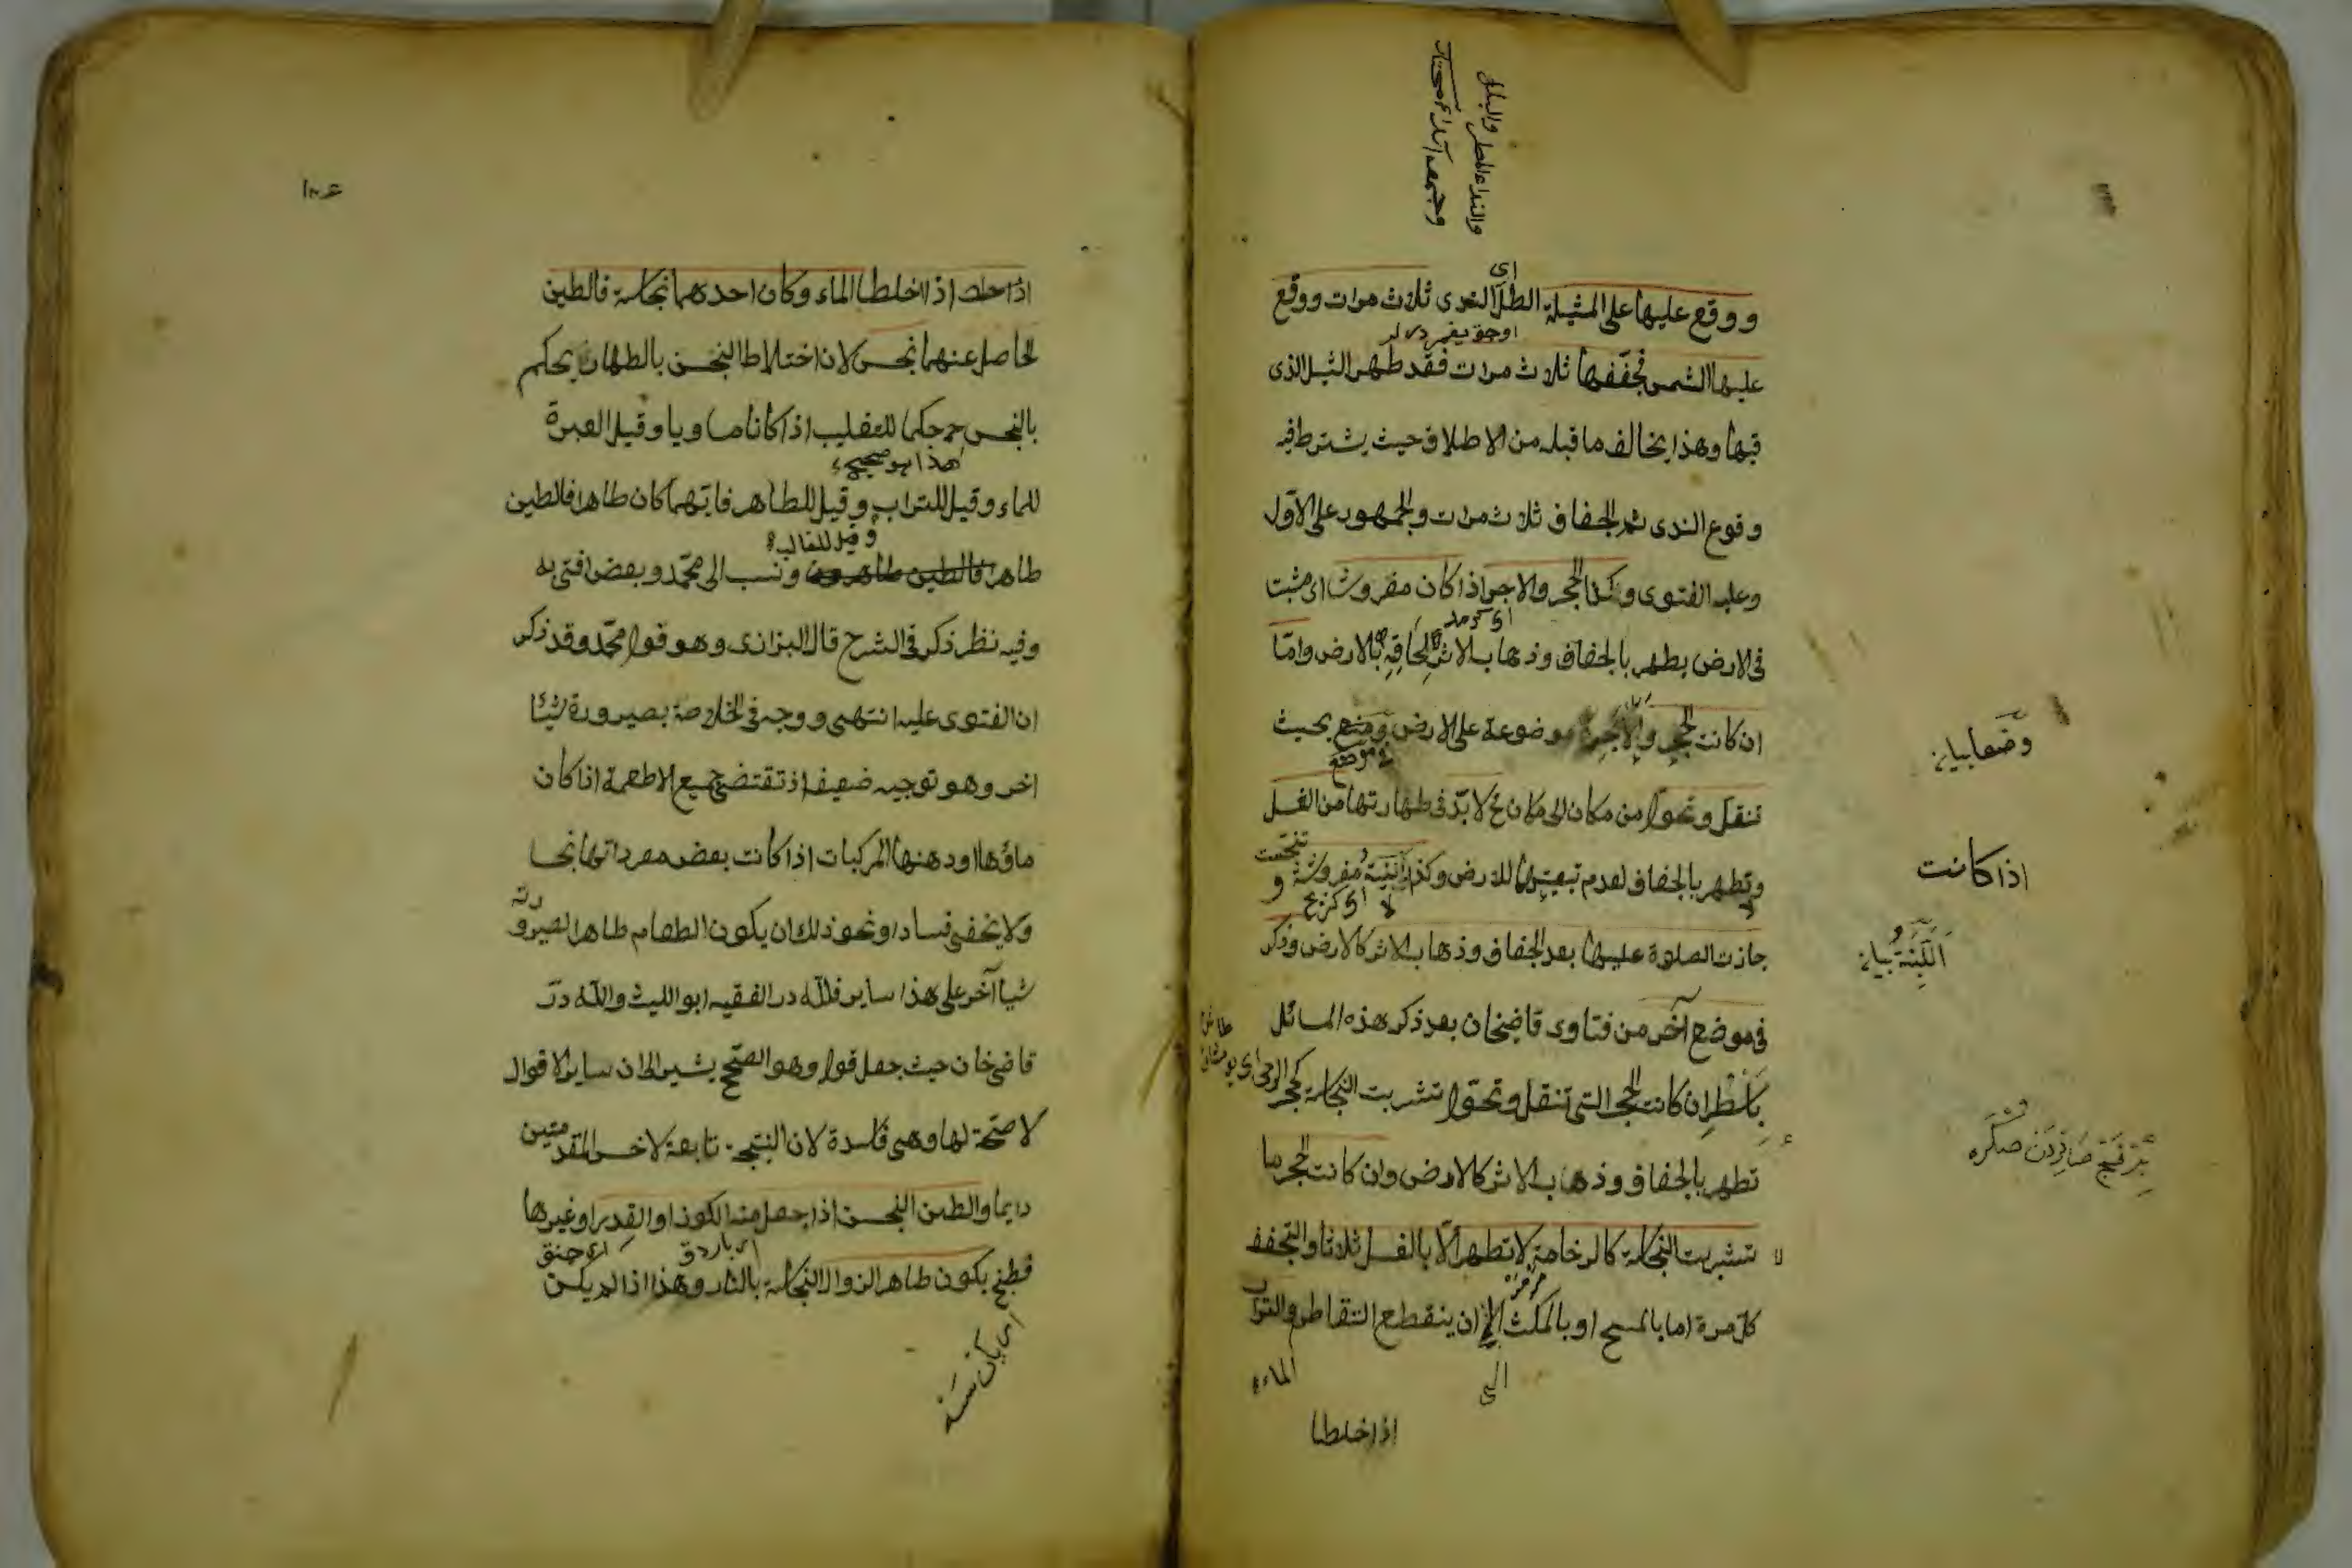 والنداء المطر والبلل
وجمعه انداء مختار
ووقع عليها على المثيلة الطل اى الندى ثلاث مرات ووقع
عليها الشمس فجففها ثلاث مرات فقد طهر الثيل الذى
فيها وهذا يخالف ما قبله من الاطلاق حيث يشترط فيه
وقوع الندى ثم الجفاف ثلاث مرات والجمهور على الاول
وعليه الفتوى وكذا الحجر والاجر اذا كان مفروشا اى مثبت
فى الارض يطهر بالجفاف وذهاب الاثر لالحاقه بالارض واما
ان كانت الحجر والاجرة موضوعة على الارض وضع بحيث
فى موضع
تنقل وتحول من مكان الى مكان فح لا بد فى طهارتها من الغسل
ولا تطهر بالجفاف لعدم تبعيتها للارض وكذا اللبنة مفروشة تنجست و
جازت الصلوة عليها بعد الجفاف وذهاب الاثر كالارض وذكر
فى موضع آخر من فتاوى قاضيخان بعد ذكر هذه المسائل
باسطر ان كانت الحجر التى تنقل وتحول تشربت النجاسة كحجر الرحى
تطهر بالجفاف وذهاب الاثر كالارض وان كانت الحجر مما
لا تشربت النجاسة كالرخامة لا تطهر الا بالغسل ثلاثا والتجفف
كل مرة اما بالمسح او بالمكث الى ان ينقطع التقاطر والتراب
الماء
الى
اذا خلطا
وضعا بيان
اذا كانت
اللبنة بيان
اذا خلط اذا اخلطا الماء وكان احدهما نجاسة فالطين
الحاصل عنهما نجس لان اختلاط النجس بالطهارة يحكم
بالنجس حكما للتغليب اذا كانا متساويا وقيل العبرة
هذا هو صحيح
للماء وقيل للتراب وقيل للطاهر فايهما كان طاهرا فالطين
وقيل للغالب
طاهر فالطين طاهر ونسب الى محمد وبعض افتى به
وفيه نظر ذكر فى الشرح قال البزازى وهو قول محمد وقد ذكر
ان الفتوى عليه انتهى ووجه فى الخلاصة بصيرورة شيئا
اخر وهو توجيه ضعيف اذ تقتضى جميع الاطعمة اذا كان
ماؤها اودهنها المركبات اذا كانت بعض مفرداتها نجسا
ولا يخفى فساده ونحو ذلك ان يكون الطعام طاهرا لصيرورته
شيأ آخر على هذا ساير فلله در الفقيه ابو الليث ولله در
قاضى خان حيث جعل قول وهو الصحيح يشير الى ان ساير الاقوال
لا صحة لها وهى فاسدة لان النتيجة تابعة لاخس المقدمتين
دايما والطين النجس اذا جعل منه الكوز او القدر او غيرها
فطبخ يكون طاهر الزوال النجاسة بالنار وهذا اذا لم يكن